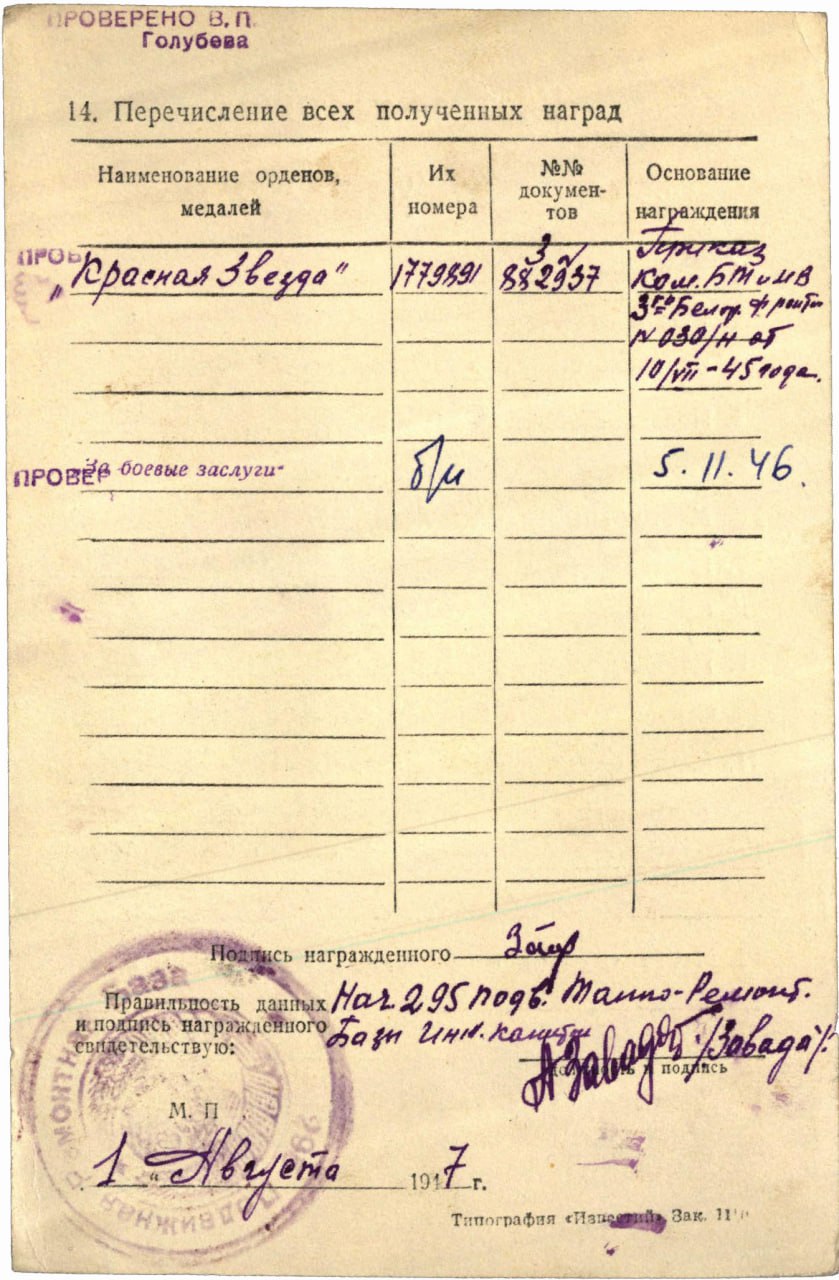 ПРОВЕРЕНО В. П.
Голубева
14. Перечисление всех полученных наград
Наименование орденов, медалей
Их номера
№№ документов
Основание награждения
ПРОВ
„Красная Звезда"
1779891
3
882937
Приказ
Ком. БТ и МВ
3го Белор. Фронта
№ 030/н от
10/VII-45 года.
ПРОВЕР
„За боевые заслуги"
б/н
5. 11. 46.
Подпись награжденного
Правильность данных
и подпись награжденного
свидетельствую:
Нач. 295 подв. Танко-Ремонт.
Базы Инж. капитан
/Завада/
должность и подпись
М. П
1 „ Августа 1947 г.
Типография «Известий» Зак. 11
база
подвижная